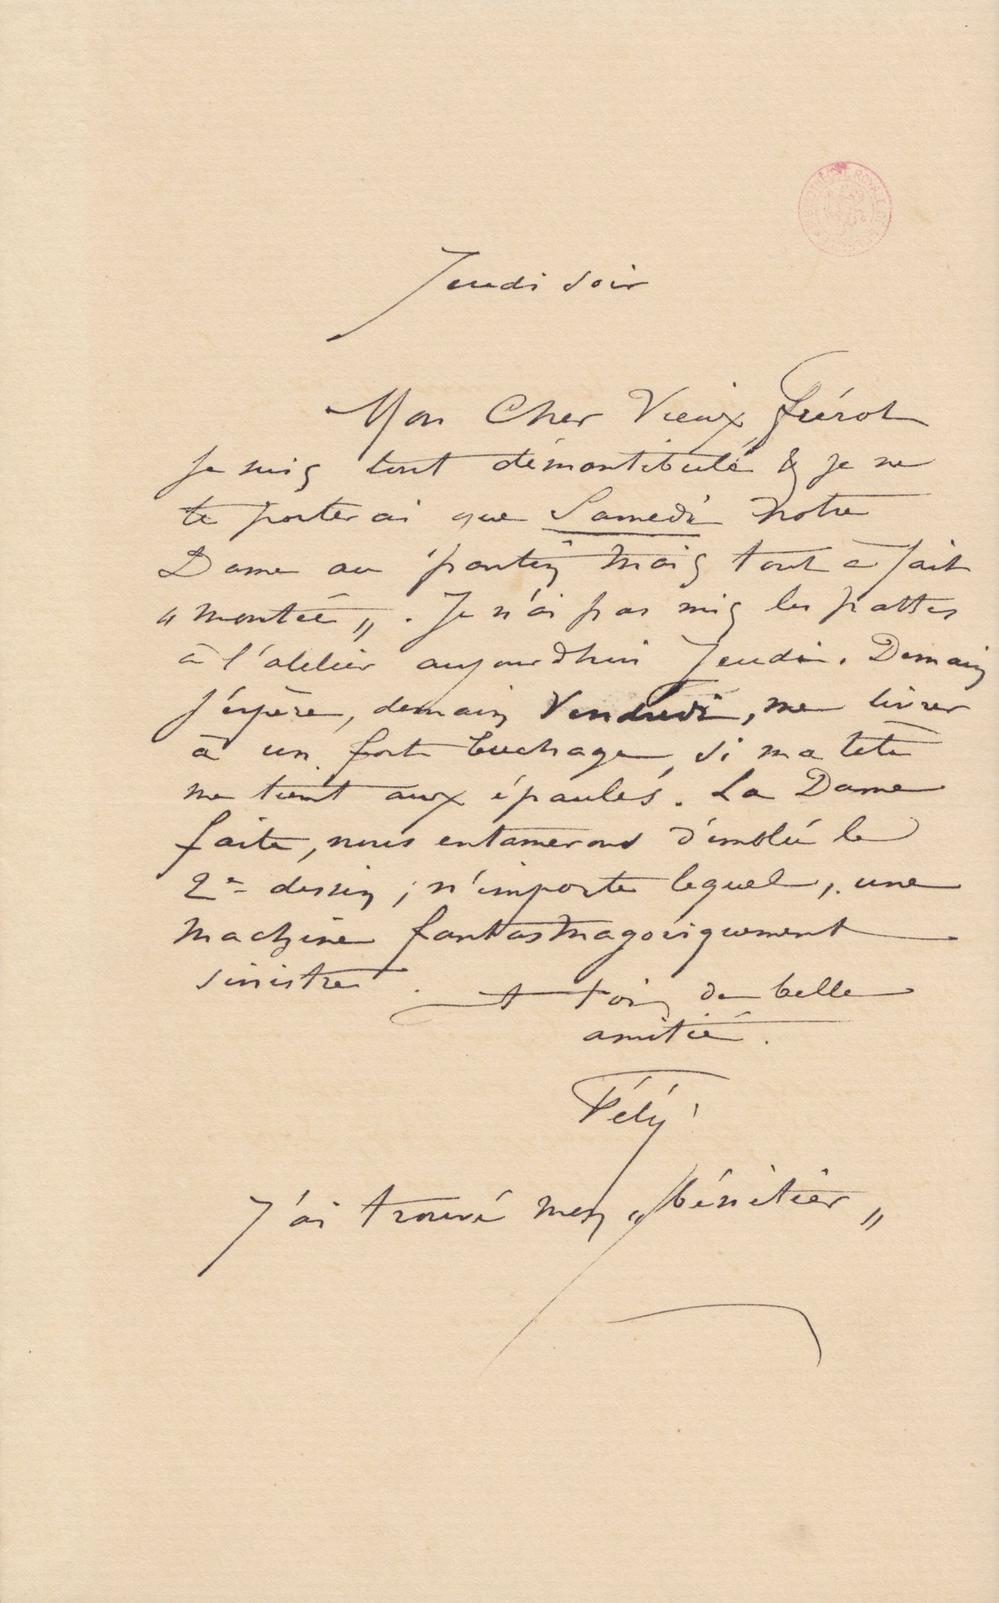 Jeudi soir
Mon Cher Vieux frérot
Je suis tout démantibulé & je ne
te porterai que Samedi Notre
Dame au pantin mais tout à fait
"montée„. Je n'ai pas mis les pattes
à l'atelier aujourdhui Jeudi. Demain
J'espère, demain Vendredi, me livrer
à un fort buchage, si ma tête
me tient aux épaules. La Dame
faite, nous entamerons d'emblée le
2e dessin ; n'importe lequel, une
machine fantasmagoriquement
sinistre.
A toi de belle
amitié.
Fély
J'ai trouvé mon "bénitier„